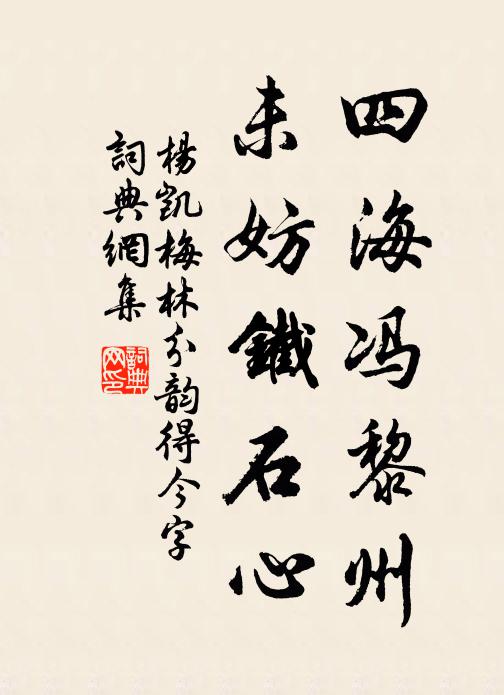 四海冯黎州
未妨鐵石心
楊凱梅林分韵得今字
詞典網集
詞典
网印